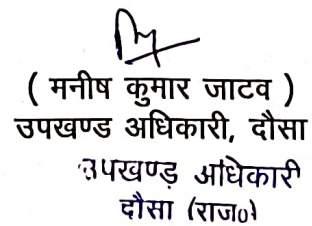 ( मनीष कुमार जाटव )
उपखण्ड अधिकारी, दौसा
उपखण्ड़ अधिकारी
दौसा (राज०)